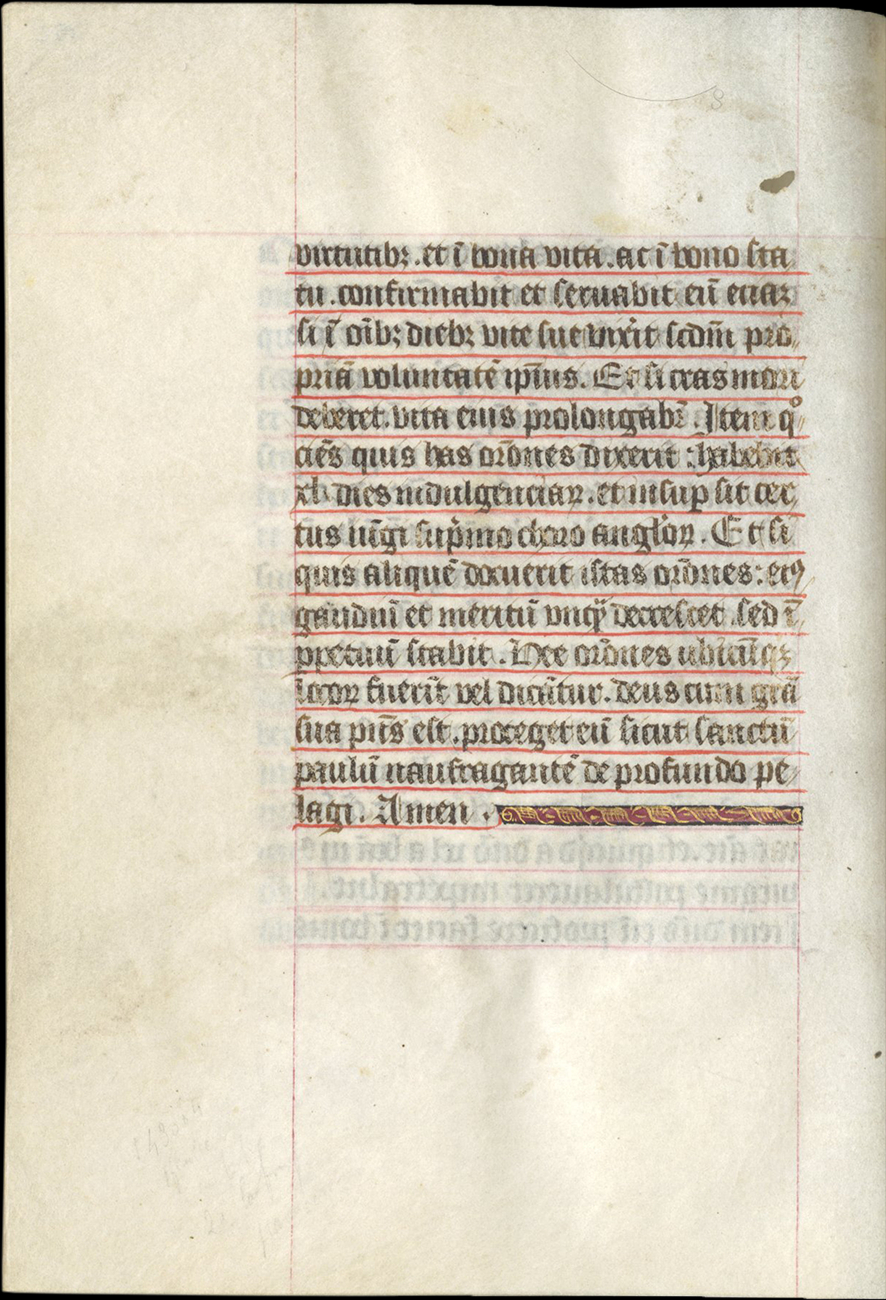 virtutibꝫ . et ĩ bona vita . ac ĩ bono sta
tu . confirmabit et seruabit eũ etiaꝫ
si ĩ oĩbꝫ diebꝫ vite sue vixit scdm̃ pro
priã voluntatẽ ipĩus . Et si cras mori
deberet . vita eius prolongabr̃ . Item qͦ
ciẽs quis has orõnes dixerit : habebit
xl dies indulgenciaꝝ . et insuꝑ sit cer
tus iũgi sup̃mo choro angl'oꝝ . Et si
quis aliquẽ docuerit istas orõnes : eiꝰ
gaudiũ et meritũ decrescet . sed ĩ
ꝑpetuũ stabit . orõnes ubicũqꝫ
locoꝝ fuerĩt vel dicũtur . deus cum grã
sua pñs est . proteget eũ sicut sanctũ
paulũ naufragantẽ de profundo pe
lagi . Amen .